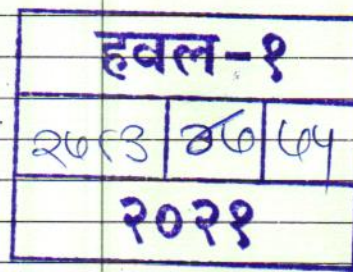 हवल-१
२७८३ ७५
२०२१